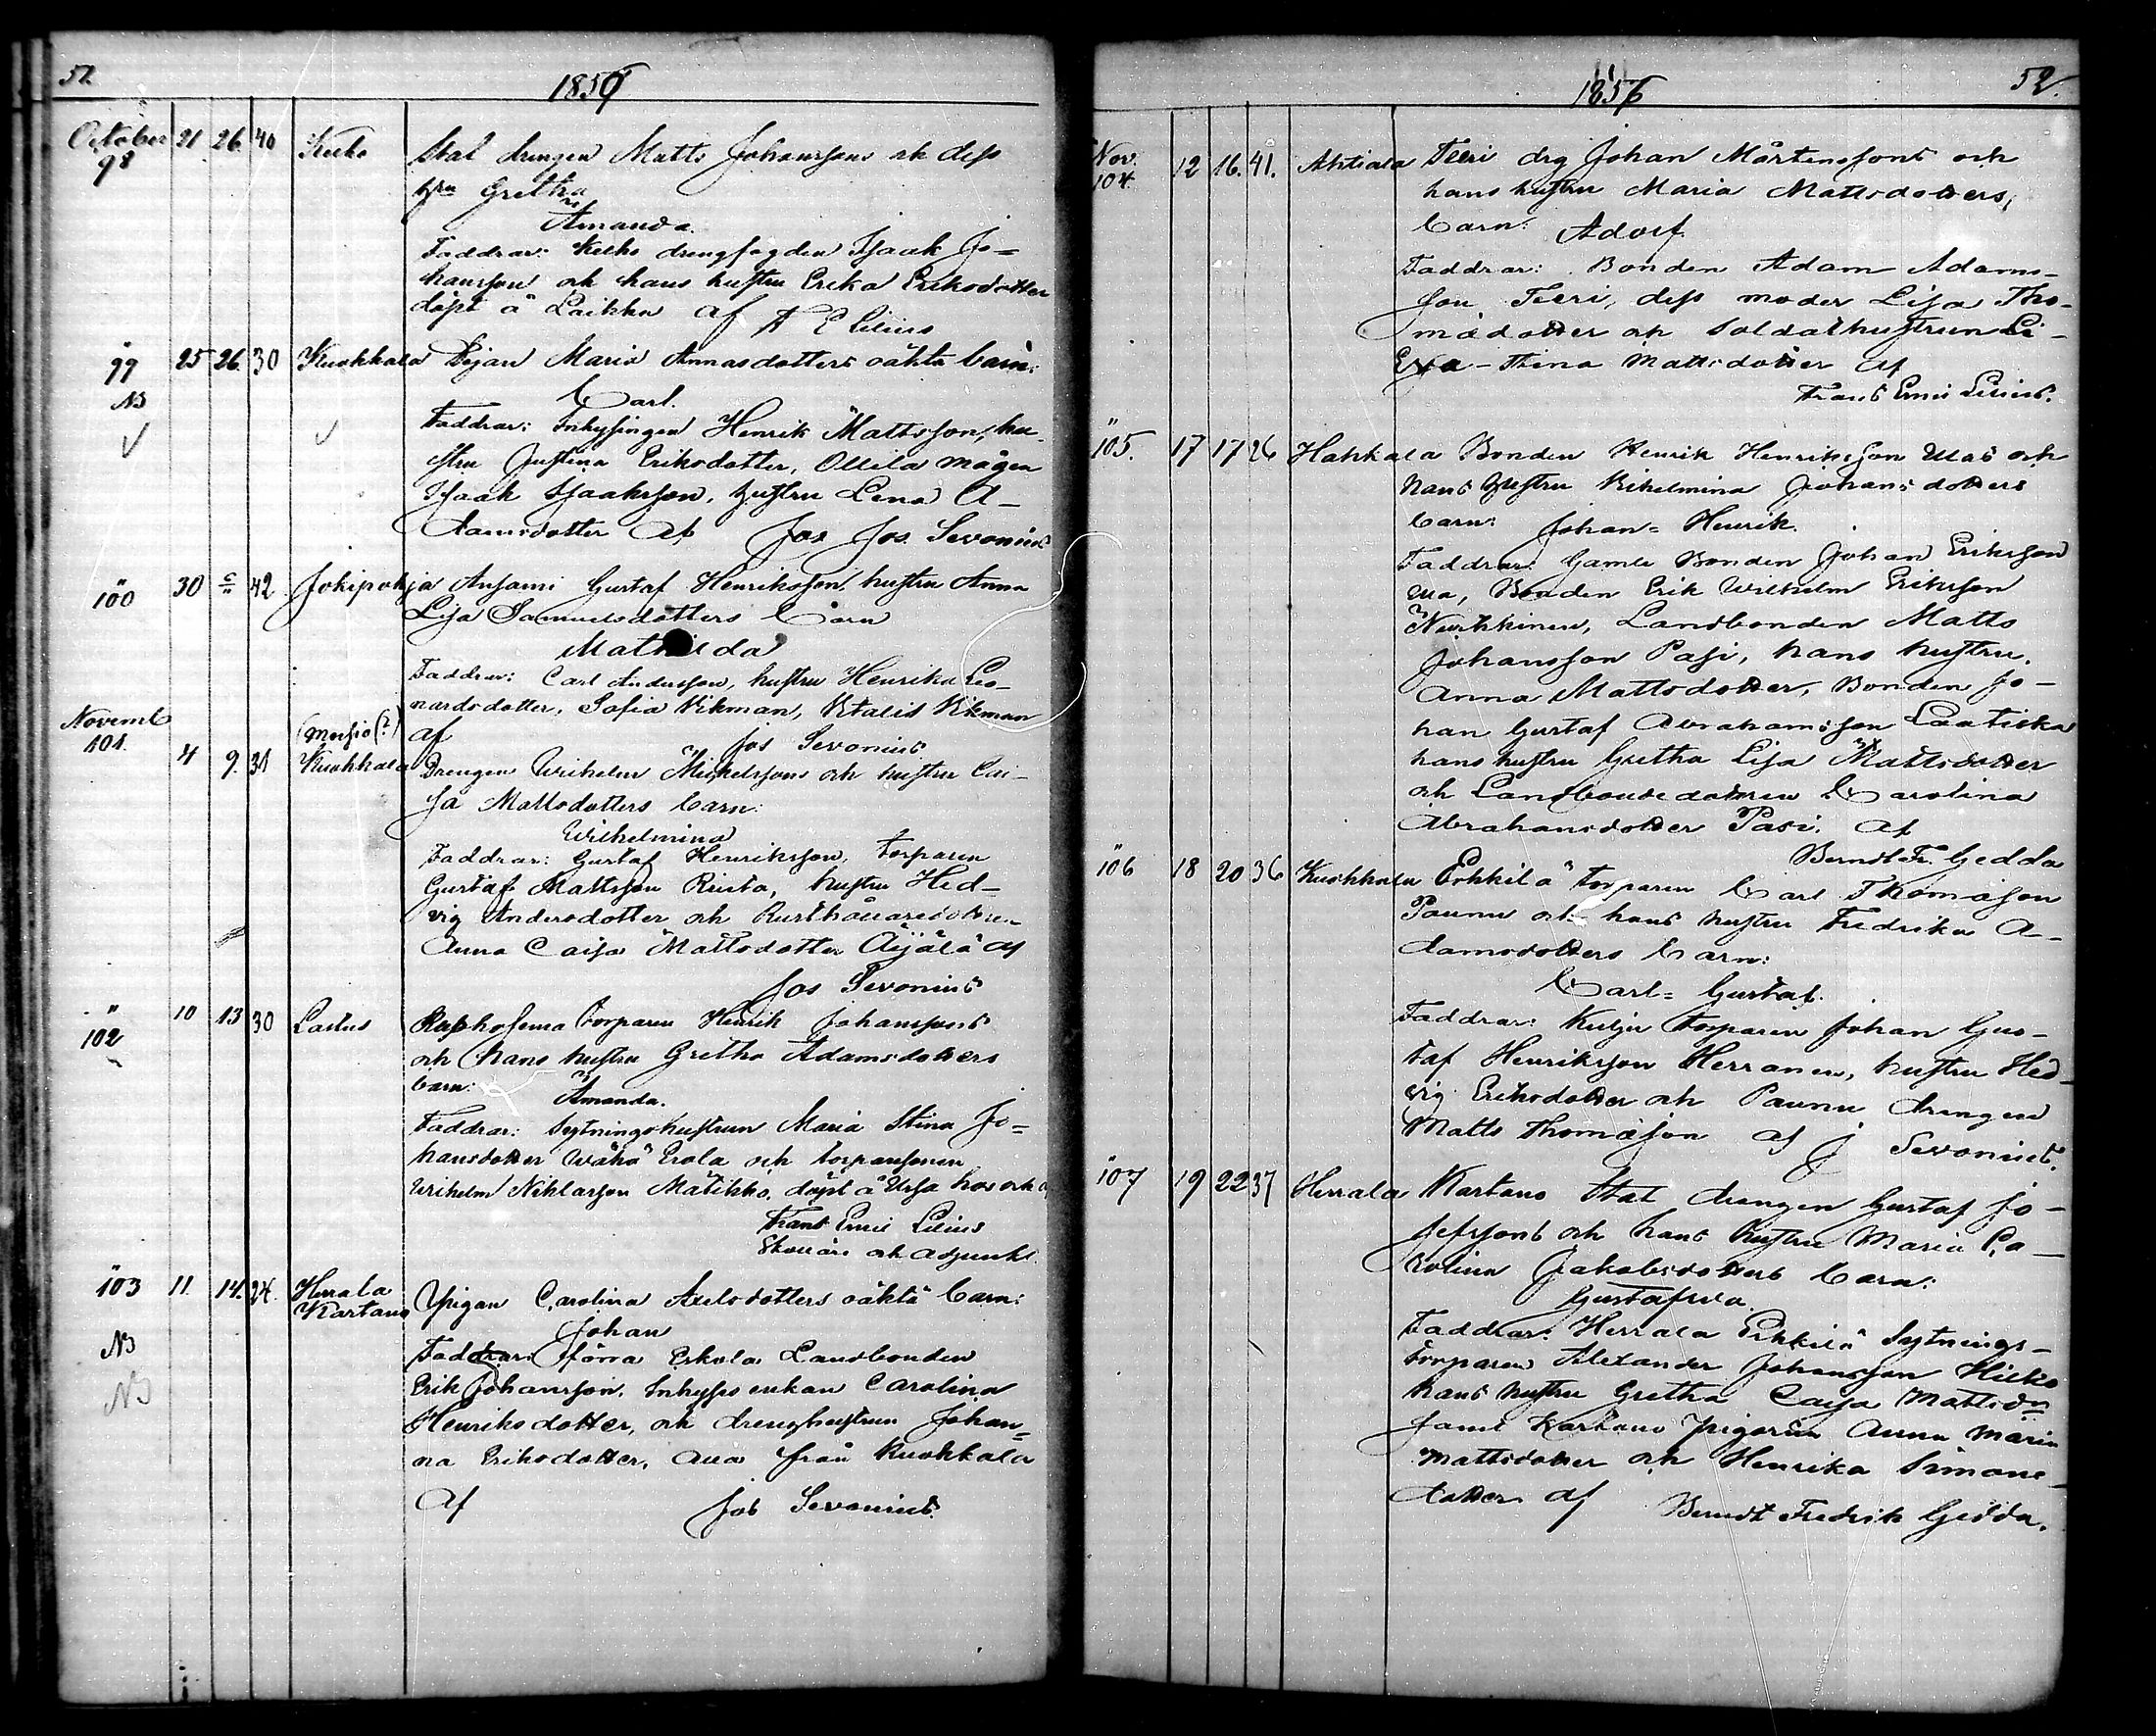 51.
1856
October 21 26. 40 Keiko Stat drengen Matts Johanssons och dess
98 h:u Gretha
Amanda.
Faddrar: Keiko drengfogden Isaak Jo=
hansson och hans hustru Erika Eriksdotter
döpt å Laikko af F E Lilius
99 25 26. 30 Kuokkala Pigan Maria Annasdotters oäkta barn:
NB Carl.
Faddrar: Inhysingen Henrik Mattsson, hu-
stru Justina Eriksdotter, Ollila mågen
Isaak Isaaksson, hustru Lena A-
damsdotter af Jos Jos. Sevonius
100 30 42 Jokipohja Ansami Gustaf Henriksson, hustru Anna
Lisa Samuelsdotters barn
Mathilda
Faddrar: Carl Andersson, hustru Henrika Leo-
nardsdotter, Sofia Vikman, Vitalis Vikman
af Jos Sevonius
Novemb (Messio (?)
101. 4 9. 31 Kuokkala Drengen Wilhelm Mickelssons och hustru Cai-
sa Mattsdotters barn:
Wilhelmina
Faddrar: Gustaf Henriksson, torparen
Gustaf Mattsson Rusta, hustru Hed-
vig Andersdotter och
Anna Caisa Mattsdotter Äijälä af
Jos Sevonius
" 10 13 30 Lastus torparen Henrik Johanssons
102 och hans hustru Gretha Adamsdotters
barn: Amanda.
Faddrar: Sytningshustrun Maria Stina Jo=
hansdotter Wähä Erola och torparsonen
Wilhelm Niklasson Matikko, döpt å
Frans Emil Lilius
och adjunkt.
103 11 14. 24. Herrala
Kartano Pigan Carolina Axelsdotters oäkta barn:
NB Johan
Faddrar: förra Erkola Landbonden
NB Erik Johansson, Inhyses enkan Carolina
Henriksdotter, och drenghustrun Johan=
na Eriksdotter, alla från Kuokkala
af Jos Sevonius.
1856 52.
Nov.
104 12 16. 41. Ahtiala Teeri drg Johan Mårtenssons och
hans hustru Maria Mattsdotters,
barn: Adolf
Faddrar: Bonden Adam Adams-
son Teeri, dess moder Lisa Tho-
mædotter och Soldathustrun
Eva-Stina Mattsdotter af
Frans Emil Lilius.
105. 17 17 26 Hakkala Bonden Henrik Henriksson Ulas och
hans hustru Vilhelmina Johansdotters
barn: Johan=Henrik.
Faddrar: Gamle Bonden Johan Eriksson
Ula, Bonden Erik Wilhelm Eriksson
Nurkkinen, Landbonden Matts
Johansson Pasi, hans hustru.
Anna Mattsdotter, Bonden Jo-
han Gustaf Abrahamsson Laatikka
hans hustru Gretha Lisa Mattsdotter
och Landbondedottren Carolina
Abrahamsdotter Pasi. af
Berndt Fr. Gedda
106 18 20 36 Kuokkala Erkkilä torparen Carl Thomæson
Paunu och hans hustru Fredrika A-
damsdotters barn:
Carl=Gustaf.
Faddrar: Kulju torparen Johan Gus-
taf Henriksson Herranen, hustru Hed-
vig Eriksdotter och Paunu drengen
Matts Thomæson af J Sevonius.
107 19 22 37 Herrala Kartano Stat drengen Gustaf Jo-
sefssons och hans hustru Maria Ca-
rolina Jakobsdotters barn:
Gustafwa.
Faddrar: Herrala Erkkilä Sytnings-
torparen Alexander Johansson Hirko
hans hustru Gretha Caisa Mattsdr
samt Kartano pigorna Anna Maria
Mattsdotter och Henrika Simons-
dotter af Berndt Fredrik Gedda.